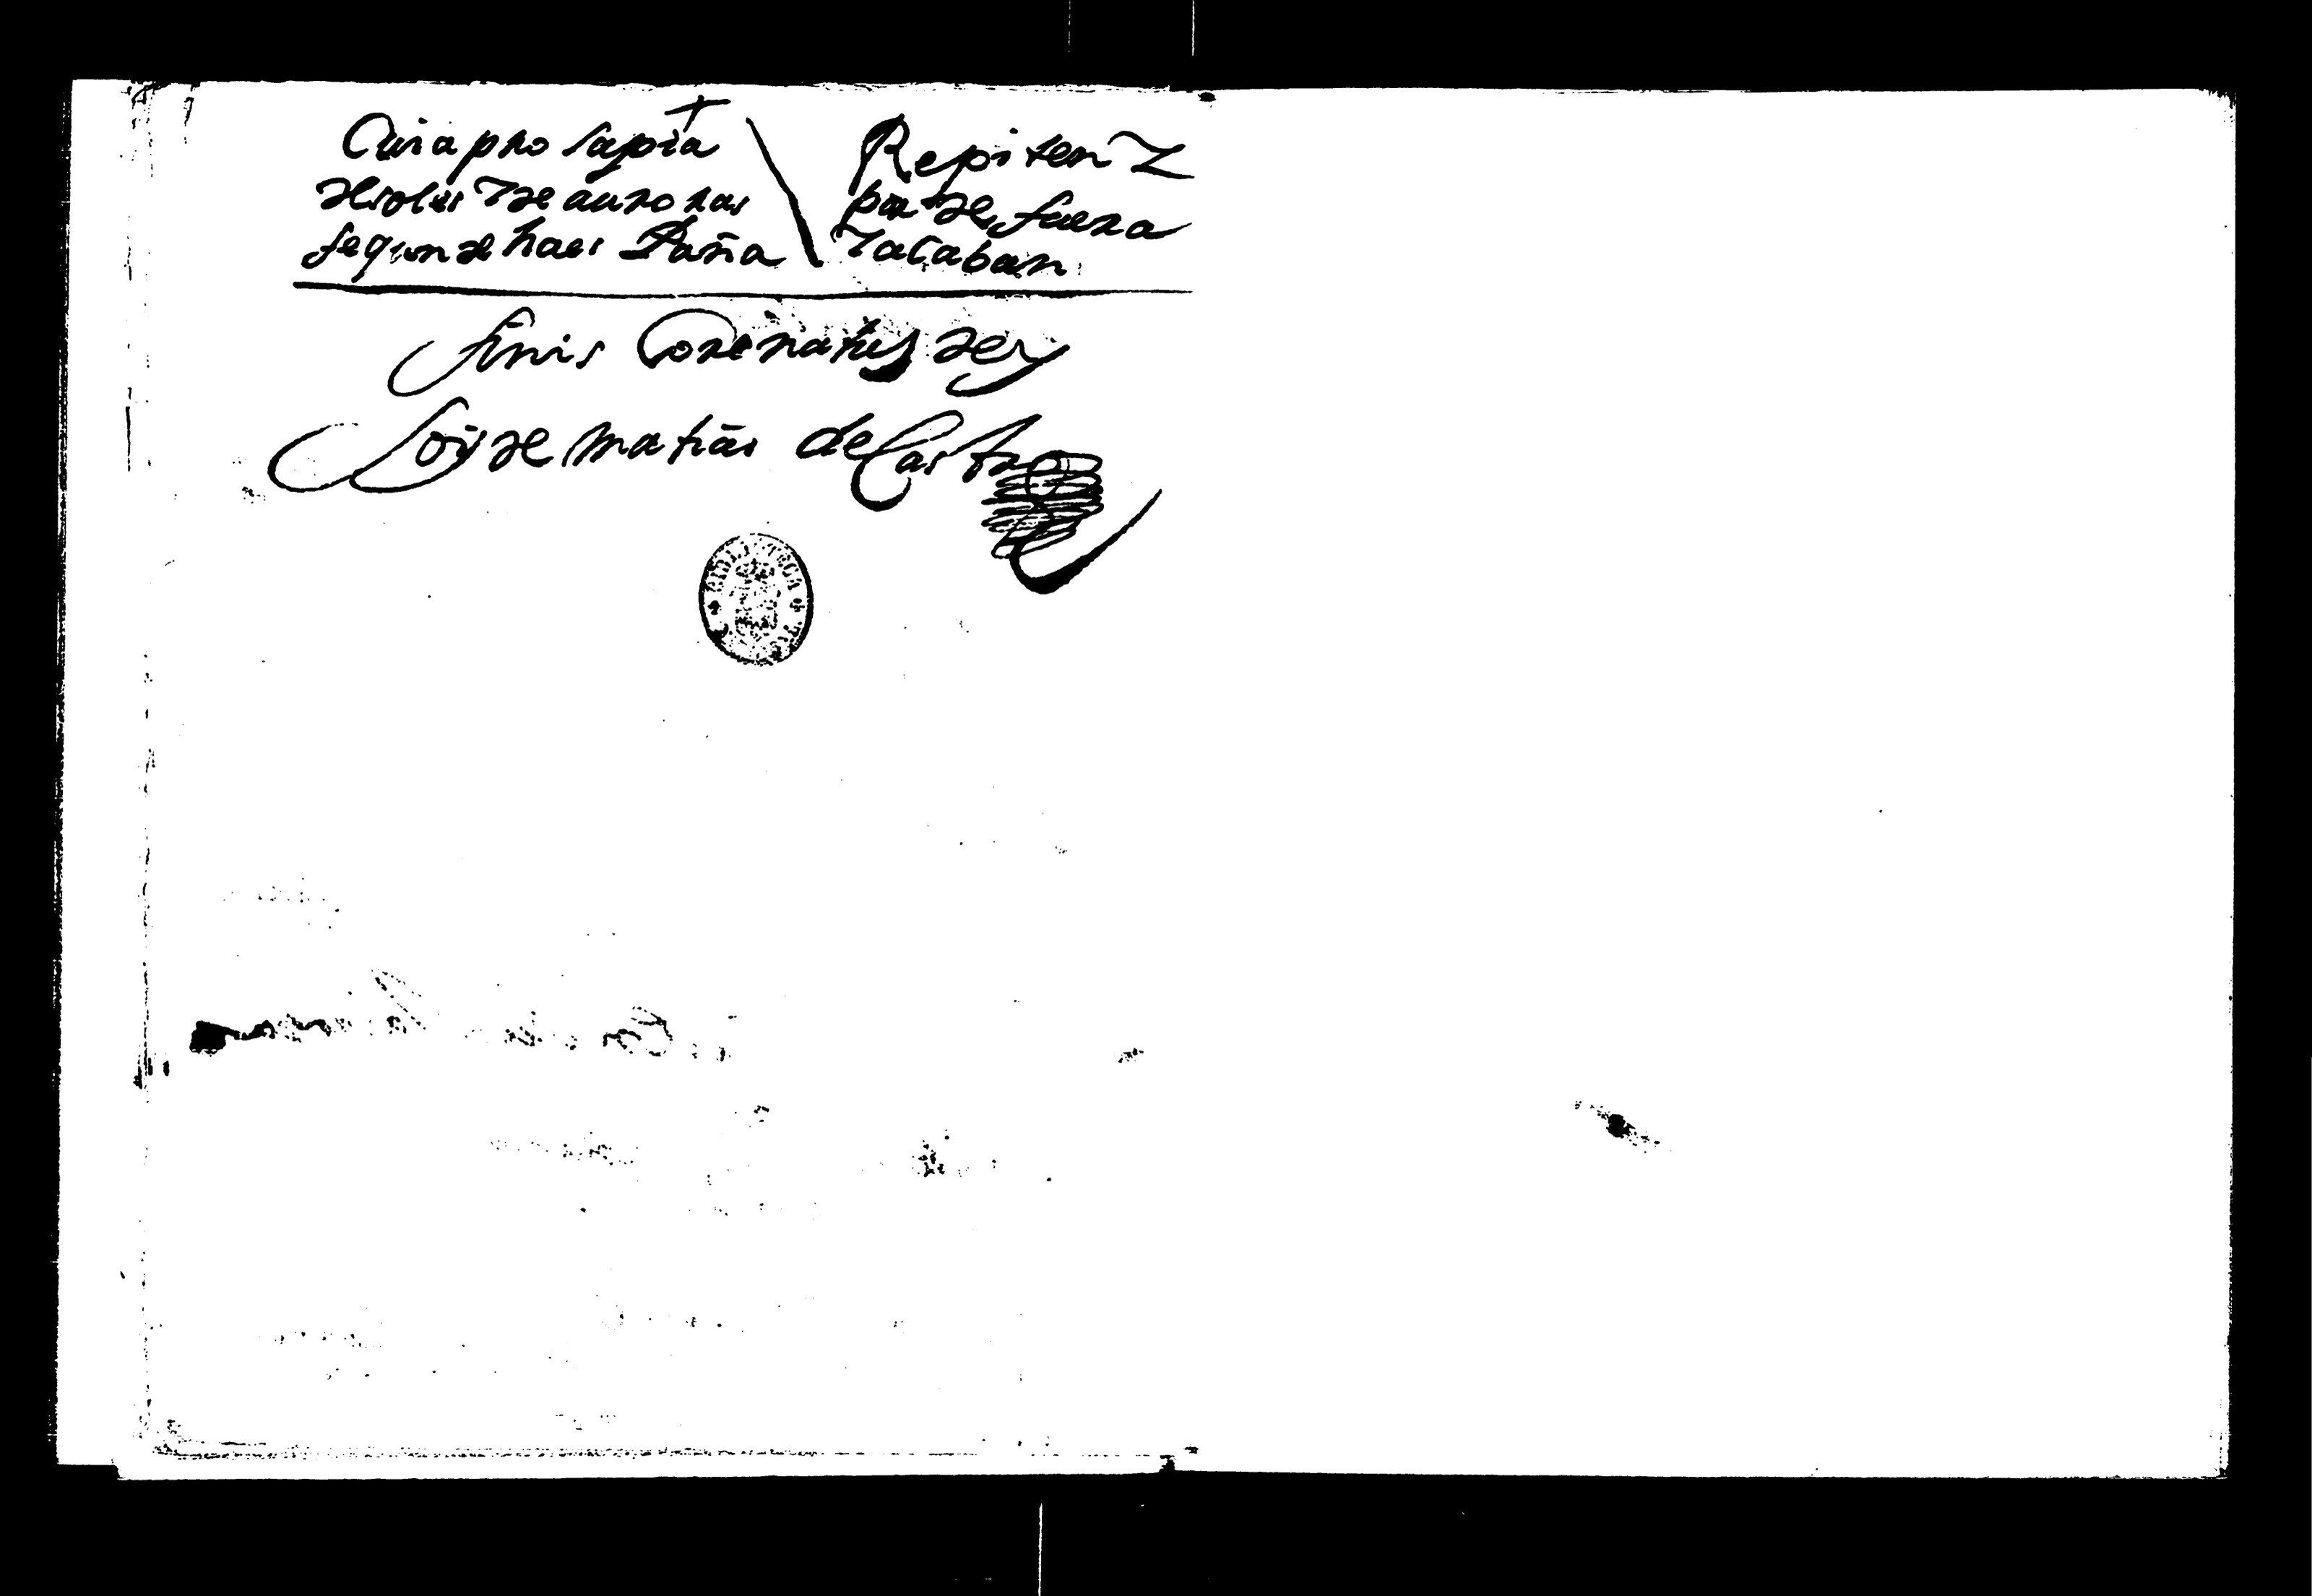 Cuia prosapia
de soles y de auroras
segunde haes Paña
Repiten Z
por de fuera
Y acaban
Finis Coronatus dey
Soy de Matias de Castro